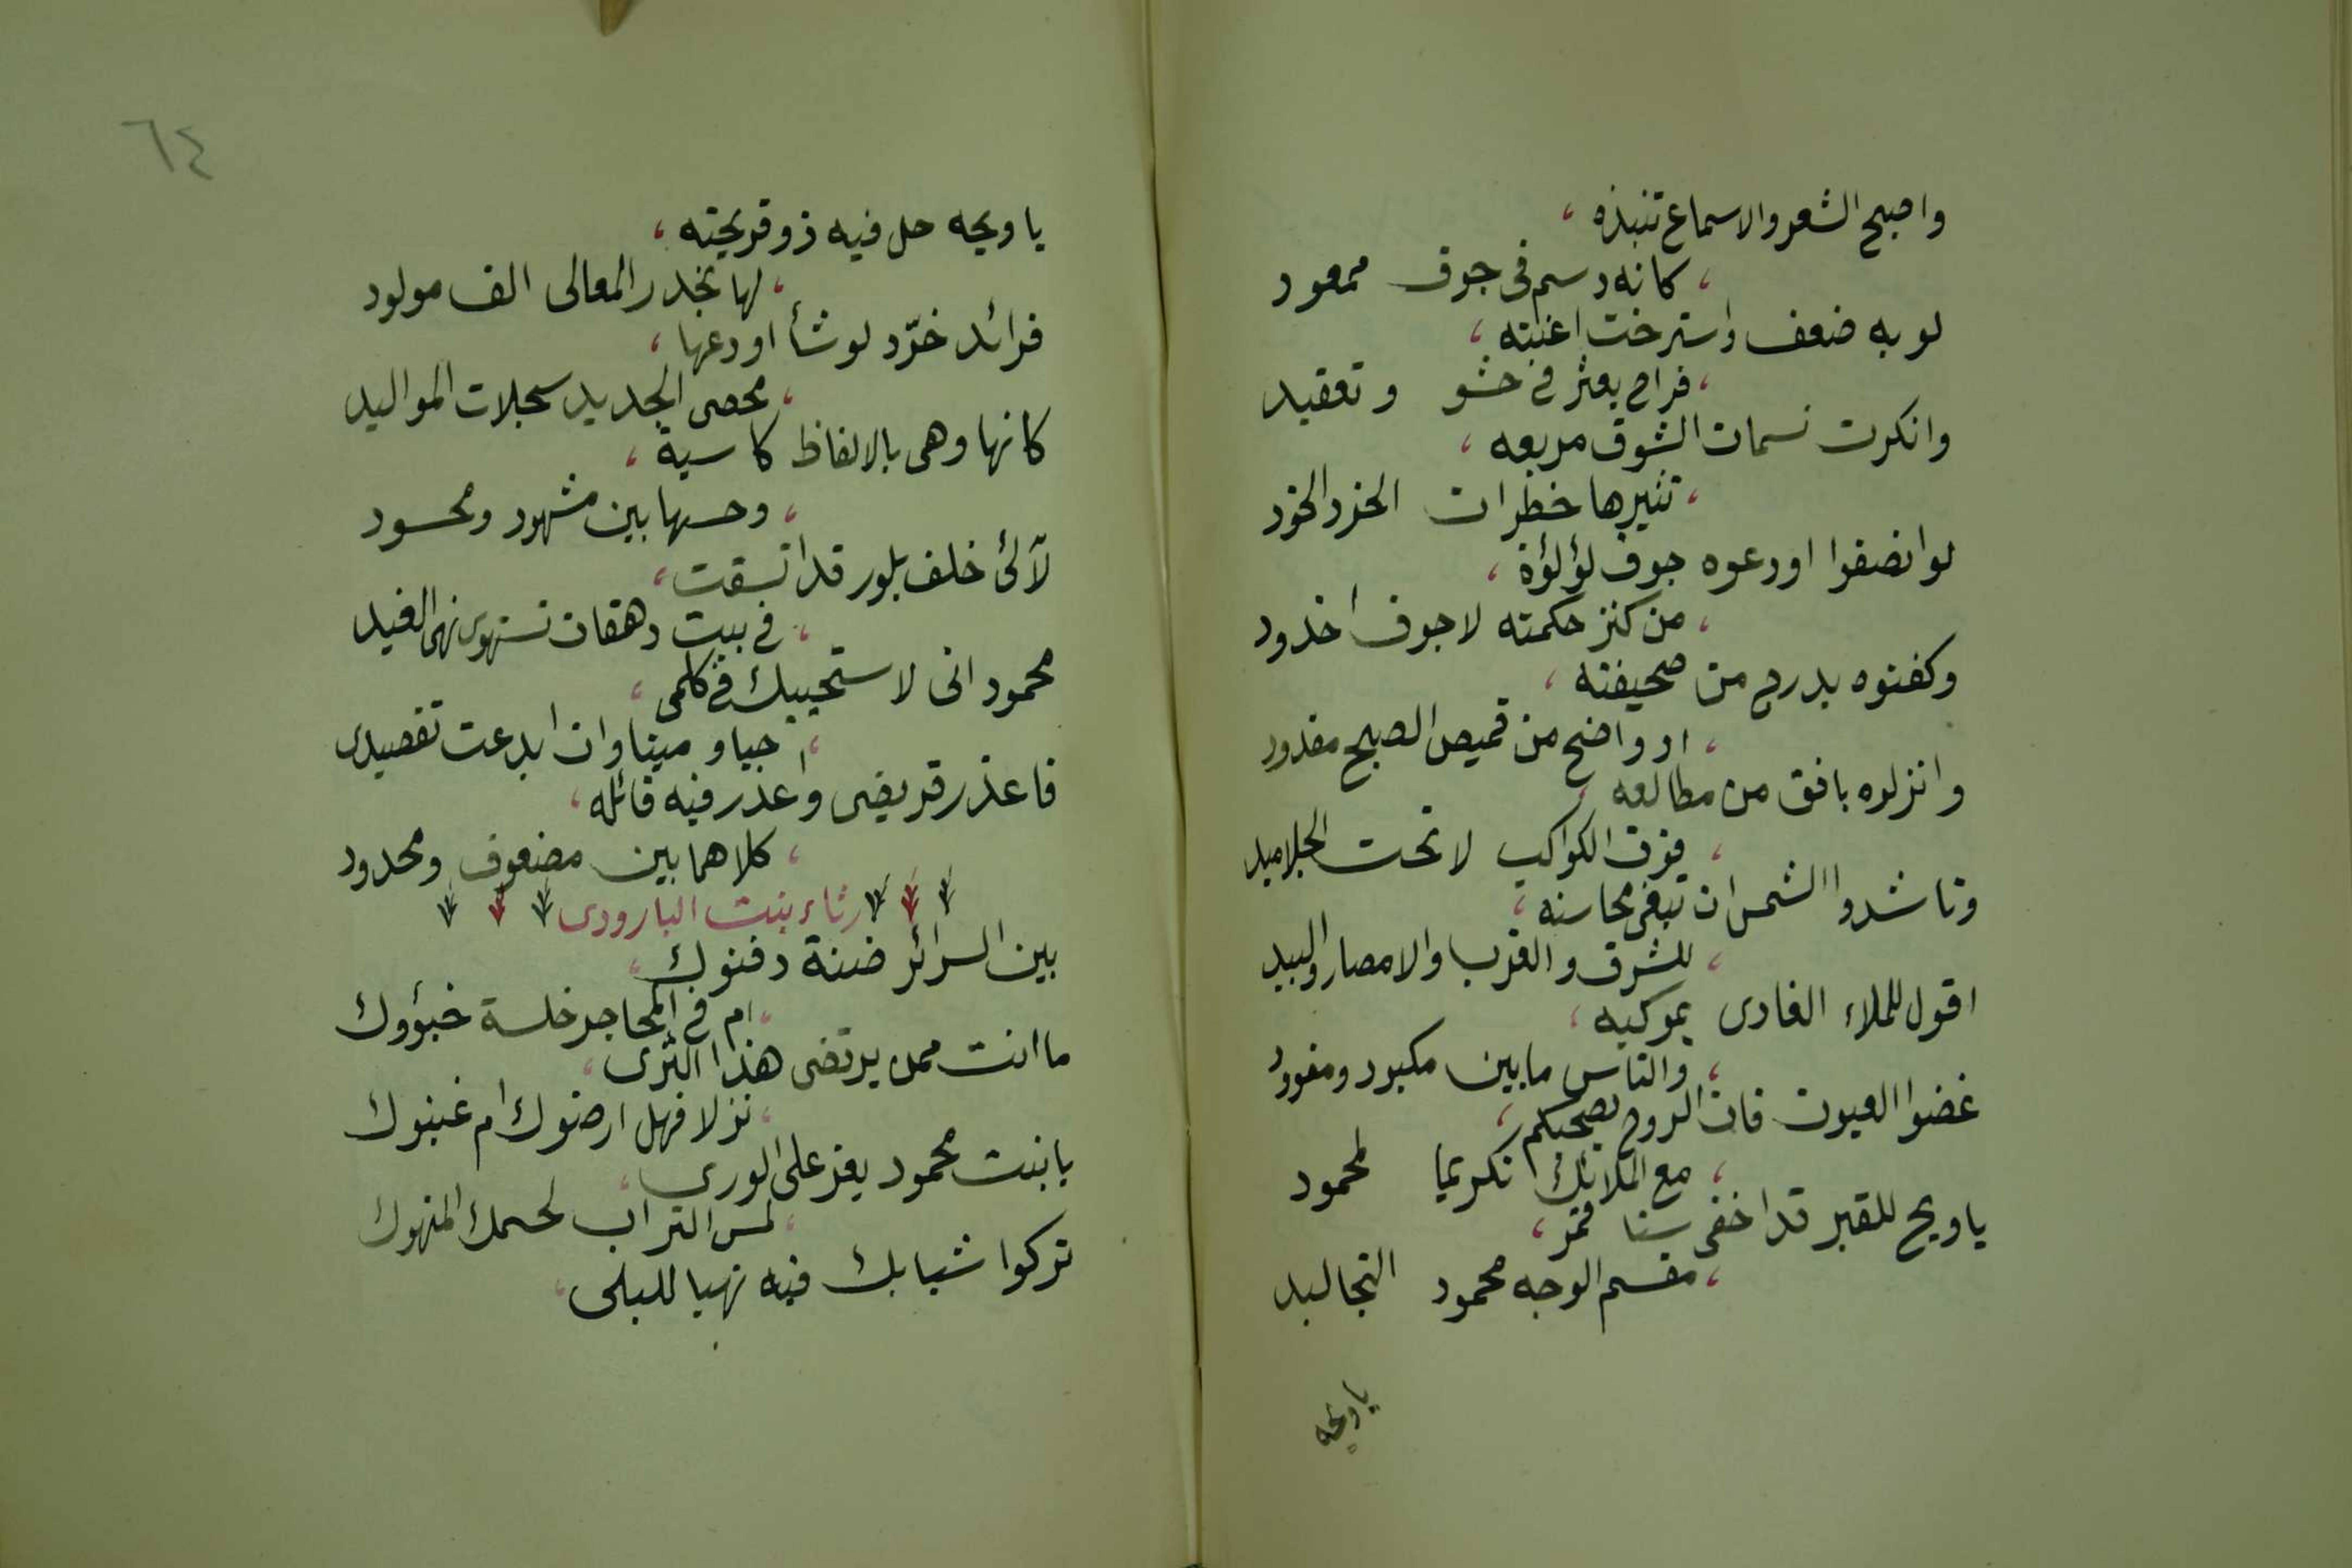 واصبح الشعر والاسماع تنبذه ،
، كانه دسم فى جوف ممعود
لو به ضعف واسترخت اعنته ،
، فراح يعثر فى حشو وتعقيد
وانكرت نسمات الشوق مربعه ،
، تثيرها خطرات الخرد الخود
لو انصفوا اودعوه جوف لؤلؤة ،
، من كنز حكمته لا جوف اخدود
وكفنوه بدرج من صحيفته ،
، او واضح من قميص الصبح مقدود
وانزلوه بافق من مطالعه ،
، فوق الكواكب لا تحت الجلاميد
وناشدوا الشمس ان تبغى محاسنه ،
، للشرق والغرب والامصار والبيد
اقول للملاء الغادى بموكبه ،
، والناس ما بين مكبود ومفوود
غضوا العيون فان الروح يصحبكم ،
، مع الملائك تكريما لمحمود
يا ويح للقبر قد اخفى سنا قمر ،
، مقسم الوجه محمود التجاليد
ياويحه
٦٤
يا ويحه حل فيه ذو قريحته ،
، لها بخدر المعالى الف مولود
فرائد خرّد لو شأ اودعها ،
، محصى الجديد سجلات المواليد
كانها وهى بالالفاظ كاسية ،
، وحسها بين مشهود ومحسود
لآلئ خلف بلور قد اتسقت ،
، فى بيت دهقان تستهوى نهى الغيد
محمود انى لاستحييك فى كلمى ،
، حيا وميتا وان ابدعت تقصيدى
فاعذر قريضى واعذر فيه قائله ،
، كلاهما بين مضعوف ومحدود
رثاء بنت البارودى
بين السرائر ضنة دفنوك ،
، ام فى المحاجر خلسة خبؤوك
ما انت ممن يرتضى هذا الثرى ،
، نزلا فهل ارضوك ام غبنوك
يا بنت محمود يعز على الورى ،
، لمس التراب لجسمك المنهوك
تركوا شبابك فيه نهبا للبلى ،